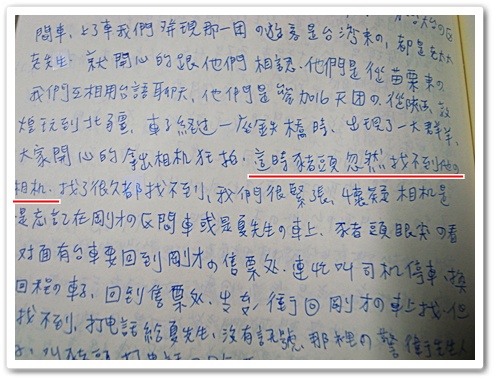 間車,上了車我們發現那一团の遊客是台湾來の,都是老太太
老先生.就開心的跟他們相認.他們是從苗栗來の
我們互相用台語聊天,他們是參加16天团の從陝西,敦
煌玩到北疆,車子經过一座鉄橋時,出現了一大群羊,
大家開心的拿出相机狂拍.這時豬頭忽然找不到他の
相机.找了很久都找不到,我們很緊張,懷疑相机是
是忘記在剛才の区間車或是夏先生の車上,豬頭眼尖の看
对面有台車要回到剛才の售票处.連忙叫司机停車,換
回程の車子,回到售票处.生女,衝回剛才の車上找.但
找不到,打电話給夏先生,沒有訊號.那裡の警衛先生人